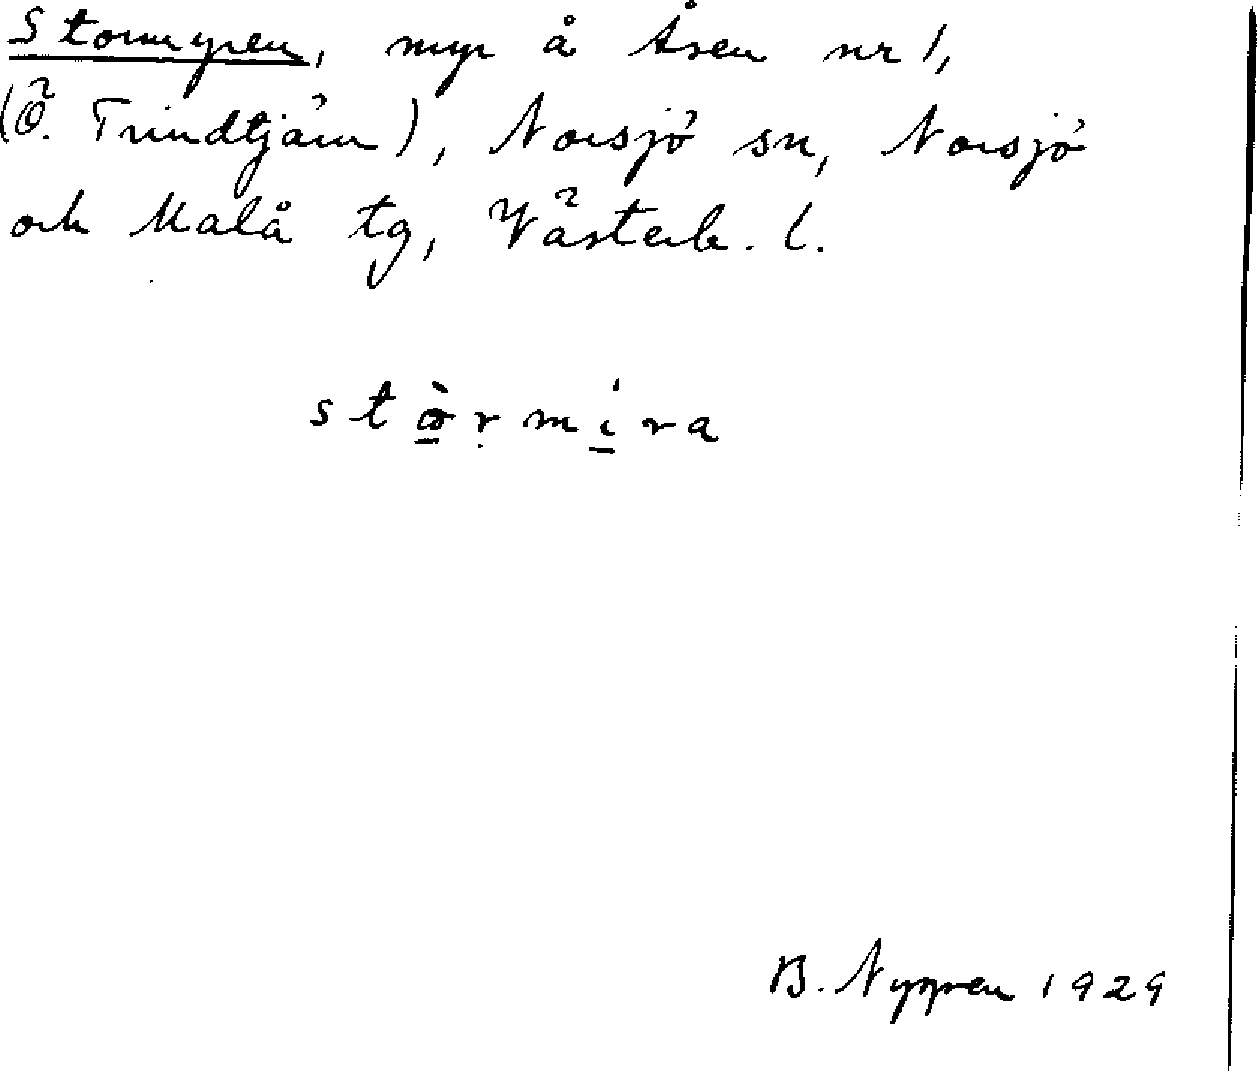 Stormyren, myr å Åsen nr 1,
(Ö. Trindtjärn), Norsjö sn, Norsjö
och Malå tg, Västerb. l.
stò̱ṛmí̱ra
B. Nygren 1929